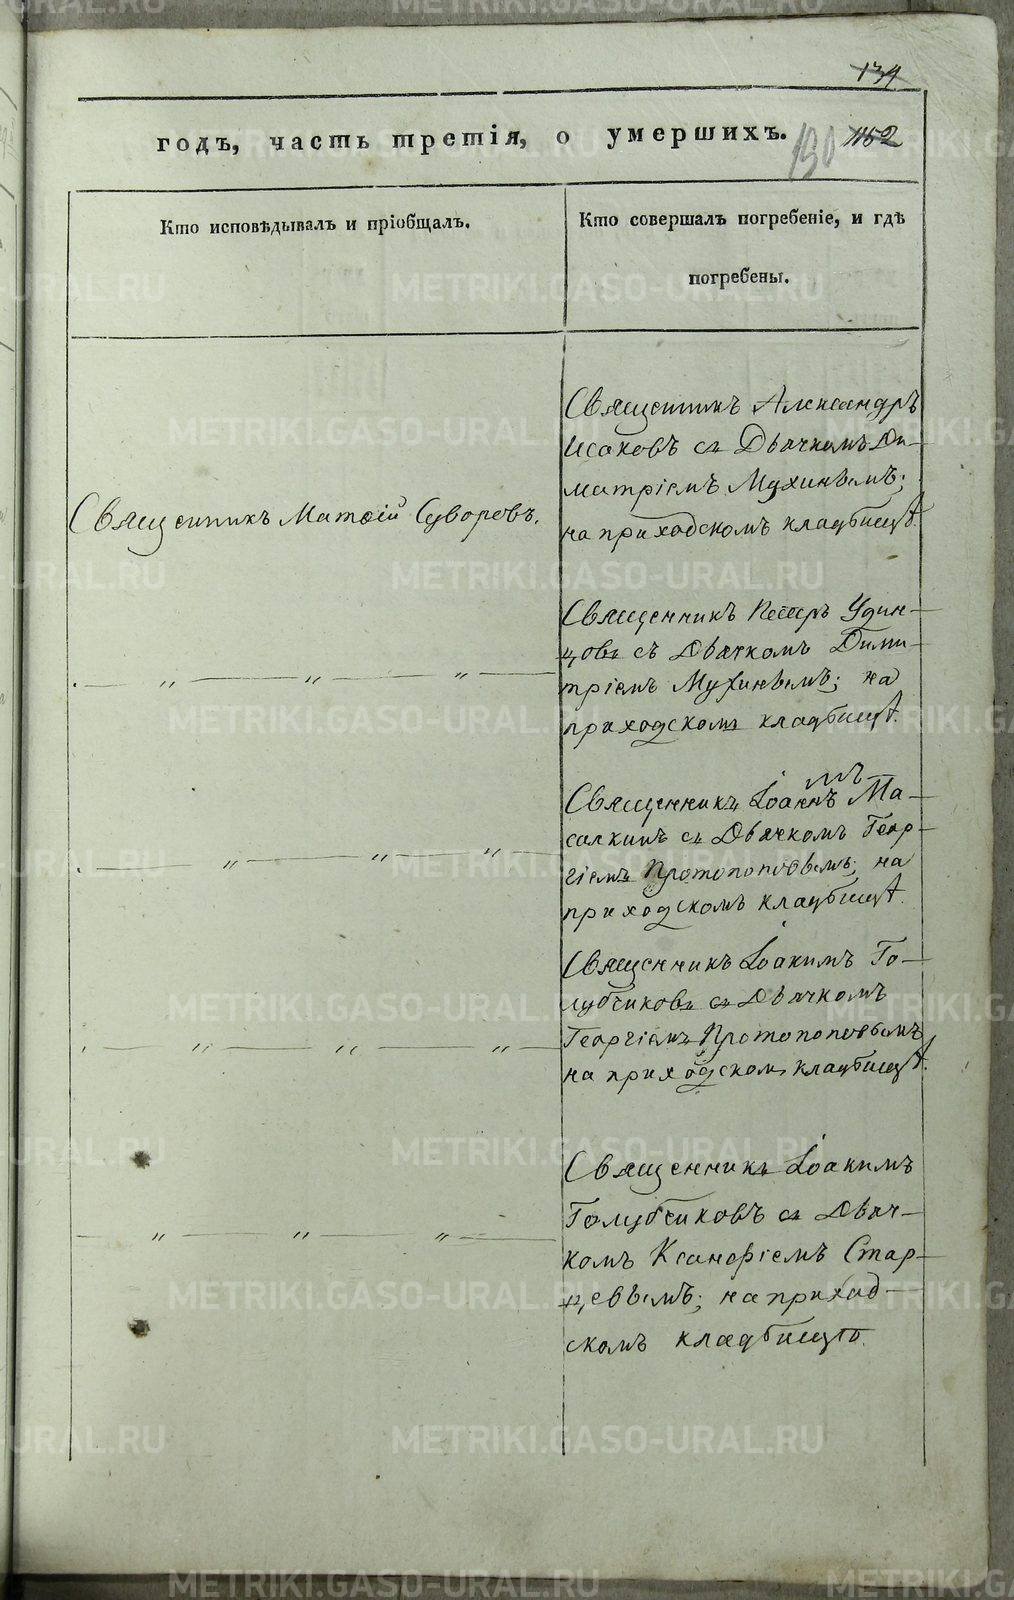 134
годъ, часть третія, о умершихъ.
190 1152
Кто исповѣдывалъ и пріобщалъ.
Кто совершалъ погребеніе, и гдѣ
погребены.
Священникъ Матѳій Суворовъ.
Священникъ Александръ
Исаковъ съ Дьячкомъ Ди-
митріемъ Мухинымъ;
на приходскомъ кладбищѣ.
„ „ „
Священникъ Петръ Удин-
цовъ съ Дьячкомъ Дими-
тріемъ Мухинымъ; на
приходскомъ кладбищѣ.
„ „ „
Священникъ Іоаннъ Ма-
салкинъ съ Дьячкомъ Геор-
гіемъ Протопоповымъ; на
приходскомъ кладбищѣ.
„ „ „
Священникъ Іоакимъ Го-
лубчиковъ съ Дьячкомъ
Георгіемъ Протопоповымъ
на приходскомъ кладбищѣ.
„ „ „
Священникъ Іоакимъ
Голубчиковъ съ Дьяч-
комъ Ксанфіемъ Стар-
цевымъ; на приход-
скомъ кладбищѣ.
METRIKI.GASO-URAL.RU